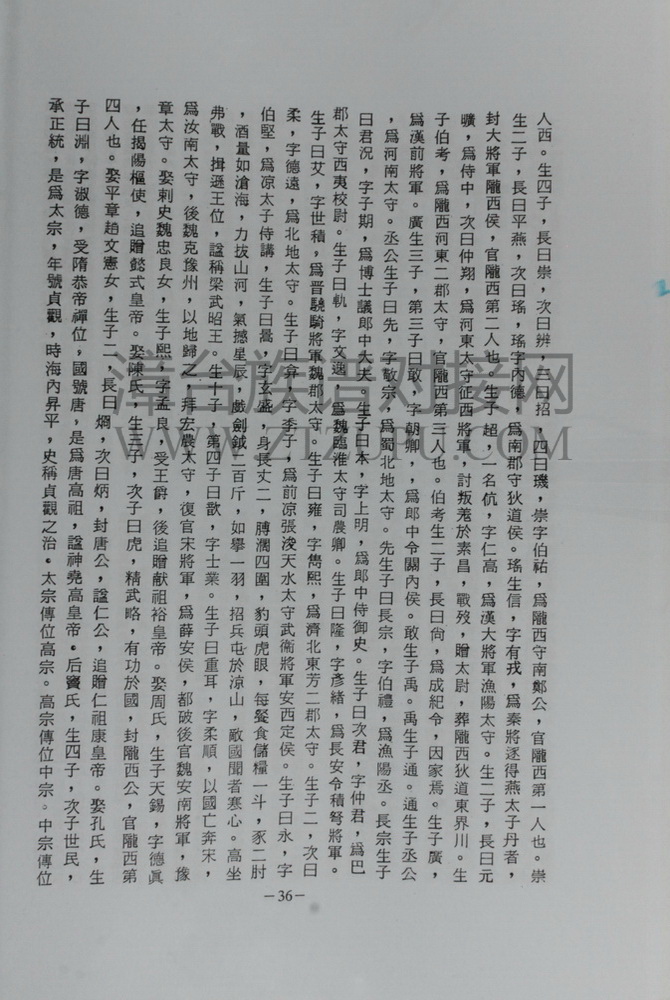 人西。生四子，長曰崇，次曰辨，三曰招，四曰璣，崇字伯祐，爲隴西守南鄭公，官隴西第一人也。崇
生二子，長曰平燕，次曰瑤，瑤字內德，爲南郡守狄道侯。瑤生信，字有戎，爲秦將逐得燕太子丹者，
封大將軍隴西侯，官隴西第二人也。生子超，一名伉，字仁高，爲漢大將軍漁陽太守。生二子，長曰元
曠，爲侍中，次曰仲翔，爲河東太守征西將軍，討叛羗於素昌，戰歿，贈太尉，葬隴西狄道東界川。生
子伯考，爲隴西河東二郡太守，官隴西第三人也。伯考生二子，長曰尙，爲成紀令，因家焉。生子廣，
爲漢前將軍。廣生三子，第三子曰敢，字朝卿，，爲郎中令關內侯。敢生子禹。禹生子通。通生子丞公
，爲河南太守。丞公生子曰先，字敬宗，爲蜀北地太守。先生子曰長宗，字伯禮，爲漁陽丞。長宗生子
曰君況，字子期，爲博士議郎中大夫。生子曰本，字上明，爲郎中侍御史。生子曰次君，字仲君，爲巴
郡太守西夷校尉。生子曰軌，字文逸，爲魏臨淮太守司農卿。生子曰隆，字彥緒，爲長安令積弩將軍。
生子曰艾，字世積，爲晋驍騎將軍魏郡太守。生子曰雍，字雋熙，爲濟北東芳二郡太守。生子二，次曰
柔，字德遠，爲北地太守。生子曰弇，字季子，爲前凉張浚天水太守武衛將軍安西定侯。生子曰永，字
伯堅，爲凉太子侍講，生子曰暠，字玄盛，身長丈二，膊濶四圍，豹頭虎眼，每餐食儲糧一斗，豕二肘
，酒量如滄海，力拔山河，氣撼星辰，戲劍鉞二百斤，如擧一羽，招兵屯於凉山，敵國聞者寒心。高坐
弗戰，揖遜王位，諡稱梁武昭王。生十子，第四子曰歆，字士業。生子曰重耳，字柔順，以國亡奔宋，
爲汝南太守，後魏克豫州，以地歸之，拜宏農太守，復官宋將軍，爲薛安侯，都破後官魏安南將軍，豫
章太守。娶剌史魏忠良女，生子熙，字孟良，受王爵，後追贈献祖裕皇帝。娶周氏，生子天錫，字德眞
，任揭陽樞使，追贈懿式皇帝。娶陳氏，生三子，次子曰虎，精武略，有功於國，封隴西公，官隴西第
四人也。娶平章趙文憲女，生子二，長曰烱，次曰炳，封唐公，諡仁公，追贈仁祖康皇帝。娶孔氏，生
子曰淵，字淑德，受隋恭帝禪位，國號唐，是爲唐高祖，諡神堯高皇帝。后竇氏，生四子，次子世民，
承正統，是爲太宗，年號貞觀，時海內昇平，史稱貞觀之治。太宗傳位高宗。高宗傳位中宗。中宗傳位
－36－
漳台族谱对接网
WWW.ZTZUPU.COM